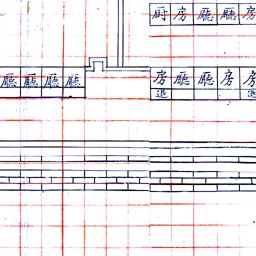 厨房廳廳房
廳廳廳廳
房廳廳房房